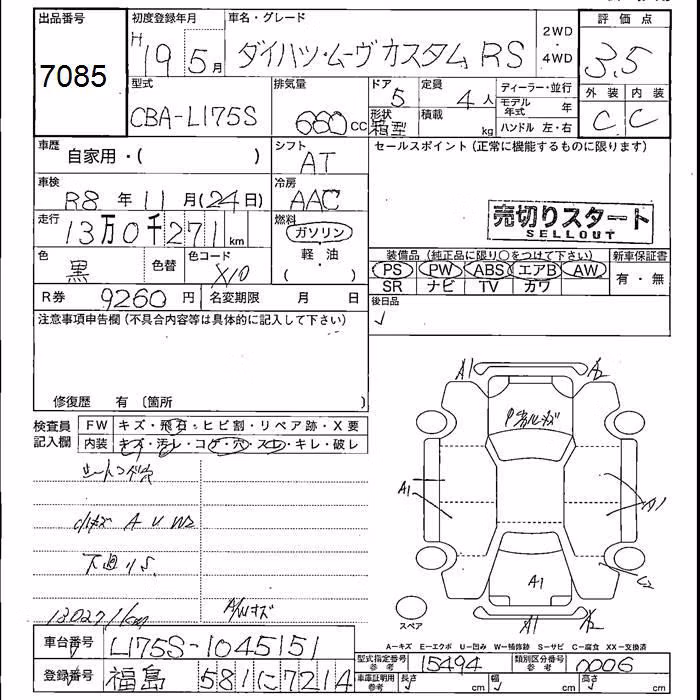 出品番号
7085
初度登録年月
H19 5月
車名・グレード
ダイハツ・ムーヴ カスタム RS
2WD
・
4WD
評価点
3.5
外装 内装
C C
型式
CBA-L175S
排気量
660cc
ドア
5
形状
箱型
定員
4人
積載
kg
ディーラー・並行
モデル年式 年
ハンドル 左・右
車歴
自家用・( )
シフト
AT
セールスポイント (正常に機能するものに限ります)
車検
R8年11月(24日)
冷房
AAC
売切りスタート
SELLOUT
走行
13万0千271km
燃料
ガソリン
軽・油
( )
色
黒
色替
色コード
X10
装備品 (純正品に限り○をつけて下さい)
PS PW ABS エアB AW
SR ナビ TV カワ
新車保証書
有・無
R券 9260円
名変期限 月 日
後日品
注意事項申告欄 (不具合内容等は具体的に記入して下さい)
修復歴 有 〔箇所 〕
検査員
記入欄
FW キズ・飛石・ヒビ割・リペア跡・X要
内装 キズ・汚レ・コゲ・穴・スレ・キレ・破レ
シートコゲ穴
A U W2
下廻りS
130271km
A/Wキズ
A1
A2
A1
A1
C2
A1
A1
A2
スペア
A=キズ E=エクボ U=凹み W=補修跡 S=サビ C=腐食 XX=交換済
車台番号 L175S-1045151
登録番号 福島 581に7214
型式指定番号
参考
15494
類別区分番号
参考
0006
車庫証明用
参考
長さ cm 幅 cm 高さ cm